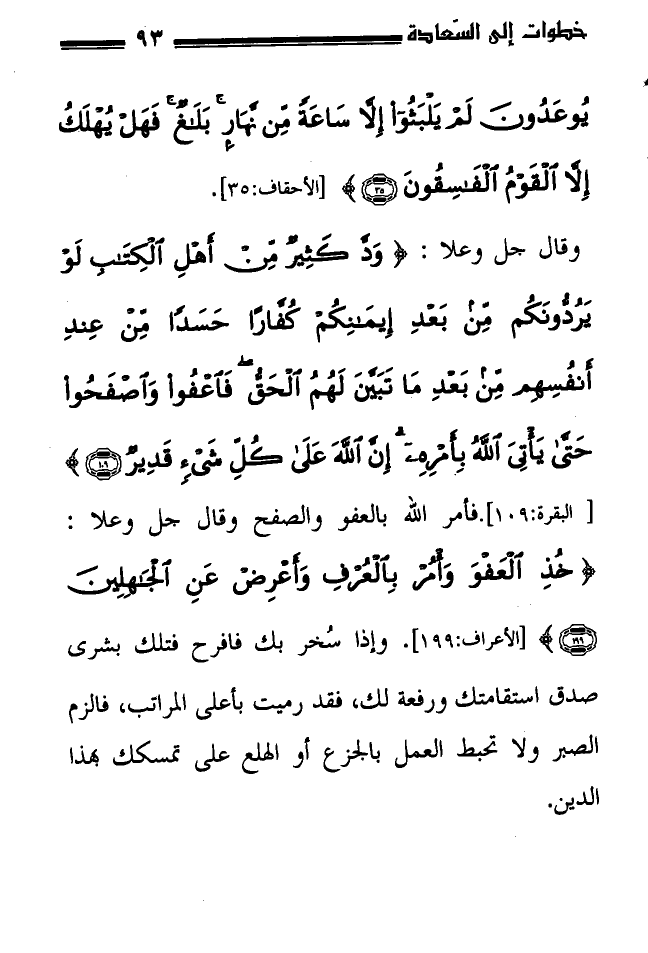 خطوات إلى السَّعادة ٩٣
يُوعَدُونَ لَمْ يَلْبَثُوٓا۟ إِلَّا سَاعَةً مِّن نَّهَارٍۭ ۚ بَلَٰغٌ ۚ فَهَلْ يُهْلَكُ
إِلَّا ٱلْقَوْمُ ٱلْفَٰسِقُونَ ٣٥ ﴾ [الأحقاف:٣٥].
وقال جل وعلا : ﴿ وَدَّ كَثِيرٌ مِّنْ أَهْلِ ٱلْكِتَٰبِ لَوْ
يَرُدُّونَكُم مِّنۢ بَعْدِ إِيمَٰنِكُمْ كُفَّارًا حَسَدًا مِّنْ عِندِ
أَنفُسِهِم مِّنۢ بَعْدِ مَا تَبَيَّنَ لَهُمُ ٱلْحَقُّ ۖ فَٱعْفُوا۟ وَٱصْفَحُوا۟
حَتَّىٰ يَأْتِىَ ٱللَّهُ بِأَمْرِهِۦٓ ۗ إِنَّ ٱللَّهَ عَلَىٰ كُلِّ شَىْءٍ قَدِيرٌ ١٠٩ ﴾
[ البقرة:١٠٩].فأمر الله بالعفو والصفح وقال جل وعلا :
﴿ خُذِ ٱلْعَفْوَ وَأْمُرْ بِٱلْعُرْفِ وَأَعْرِضْ عَنِ ٱلْجَٰهِلِينَ
١٩٩ ﴾ [الأعراف:١٩٩]. وإذا سُخر بك فافرح فتلك بشرى
صدق استقامتك ورفعة لك، فقد رميت بأعلى المراتب، فالزم
الصبر ولا تحبط العمل بالجزع أو الهلع على تمسكك بهذا
الدين.